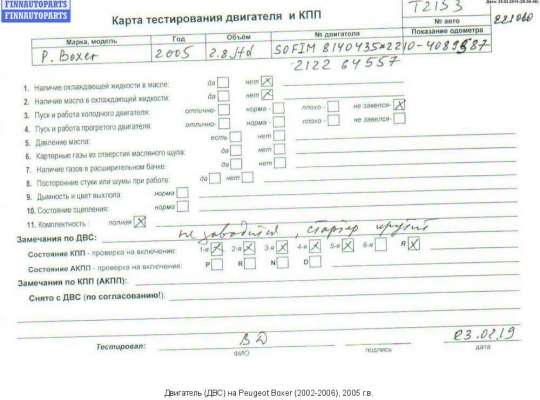 FINNAUTOPARTS
FINNAUTOPARTS
FINNAUTOPARTS
Карта тестирования двигателя и КПП
T2153
№ авто
Марка, модель Год Объём № двигателя Показание одометра
P. Boxer 2005 2.8 Hd SOFIM 8140435*2210-4089587
2122 64557
1. Наличие охлаждающей жидкости в масле: да нет X
2. Наличие масла в охлаждающей жидкости: да нет X
3. Пуск и работа холодного двигателя: отлично- норма - плохо - не завелся- X
4. Пуск и работа прогретого двигателя: отлично- норма - плохо - не завелся-
5. Давление масла: есть нет
6. Картерные газы из отверстия масляного щупа: да нет
7. Наличие газов в расширительном бачке: да нет
8. Посторонние стуки или шумы при работе: да нет
9. Дымность и цвет выхлопа норма
10. Состояние сцепления: норма
11. Комплектность : полная X
Замечания по ДВС: не заводится, стартер крутит
Состояние КПП - проверка на включение: 1-я X 2-я X 3-я X 4-я X 5-я X 6-я R X
Состояние АКПП - проверка на включение: P R N D
Замечания по КПП (АКПП):
Снято с ДВС (по согласованию!):
Тестировал: ВД 23.02.19
ФИО подпись дата
Двигатель (ДВС) на Peugeot Boxer (2002-2006), 2005 г.в.